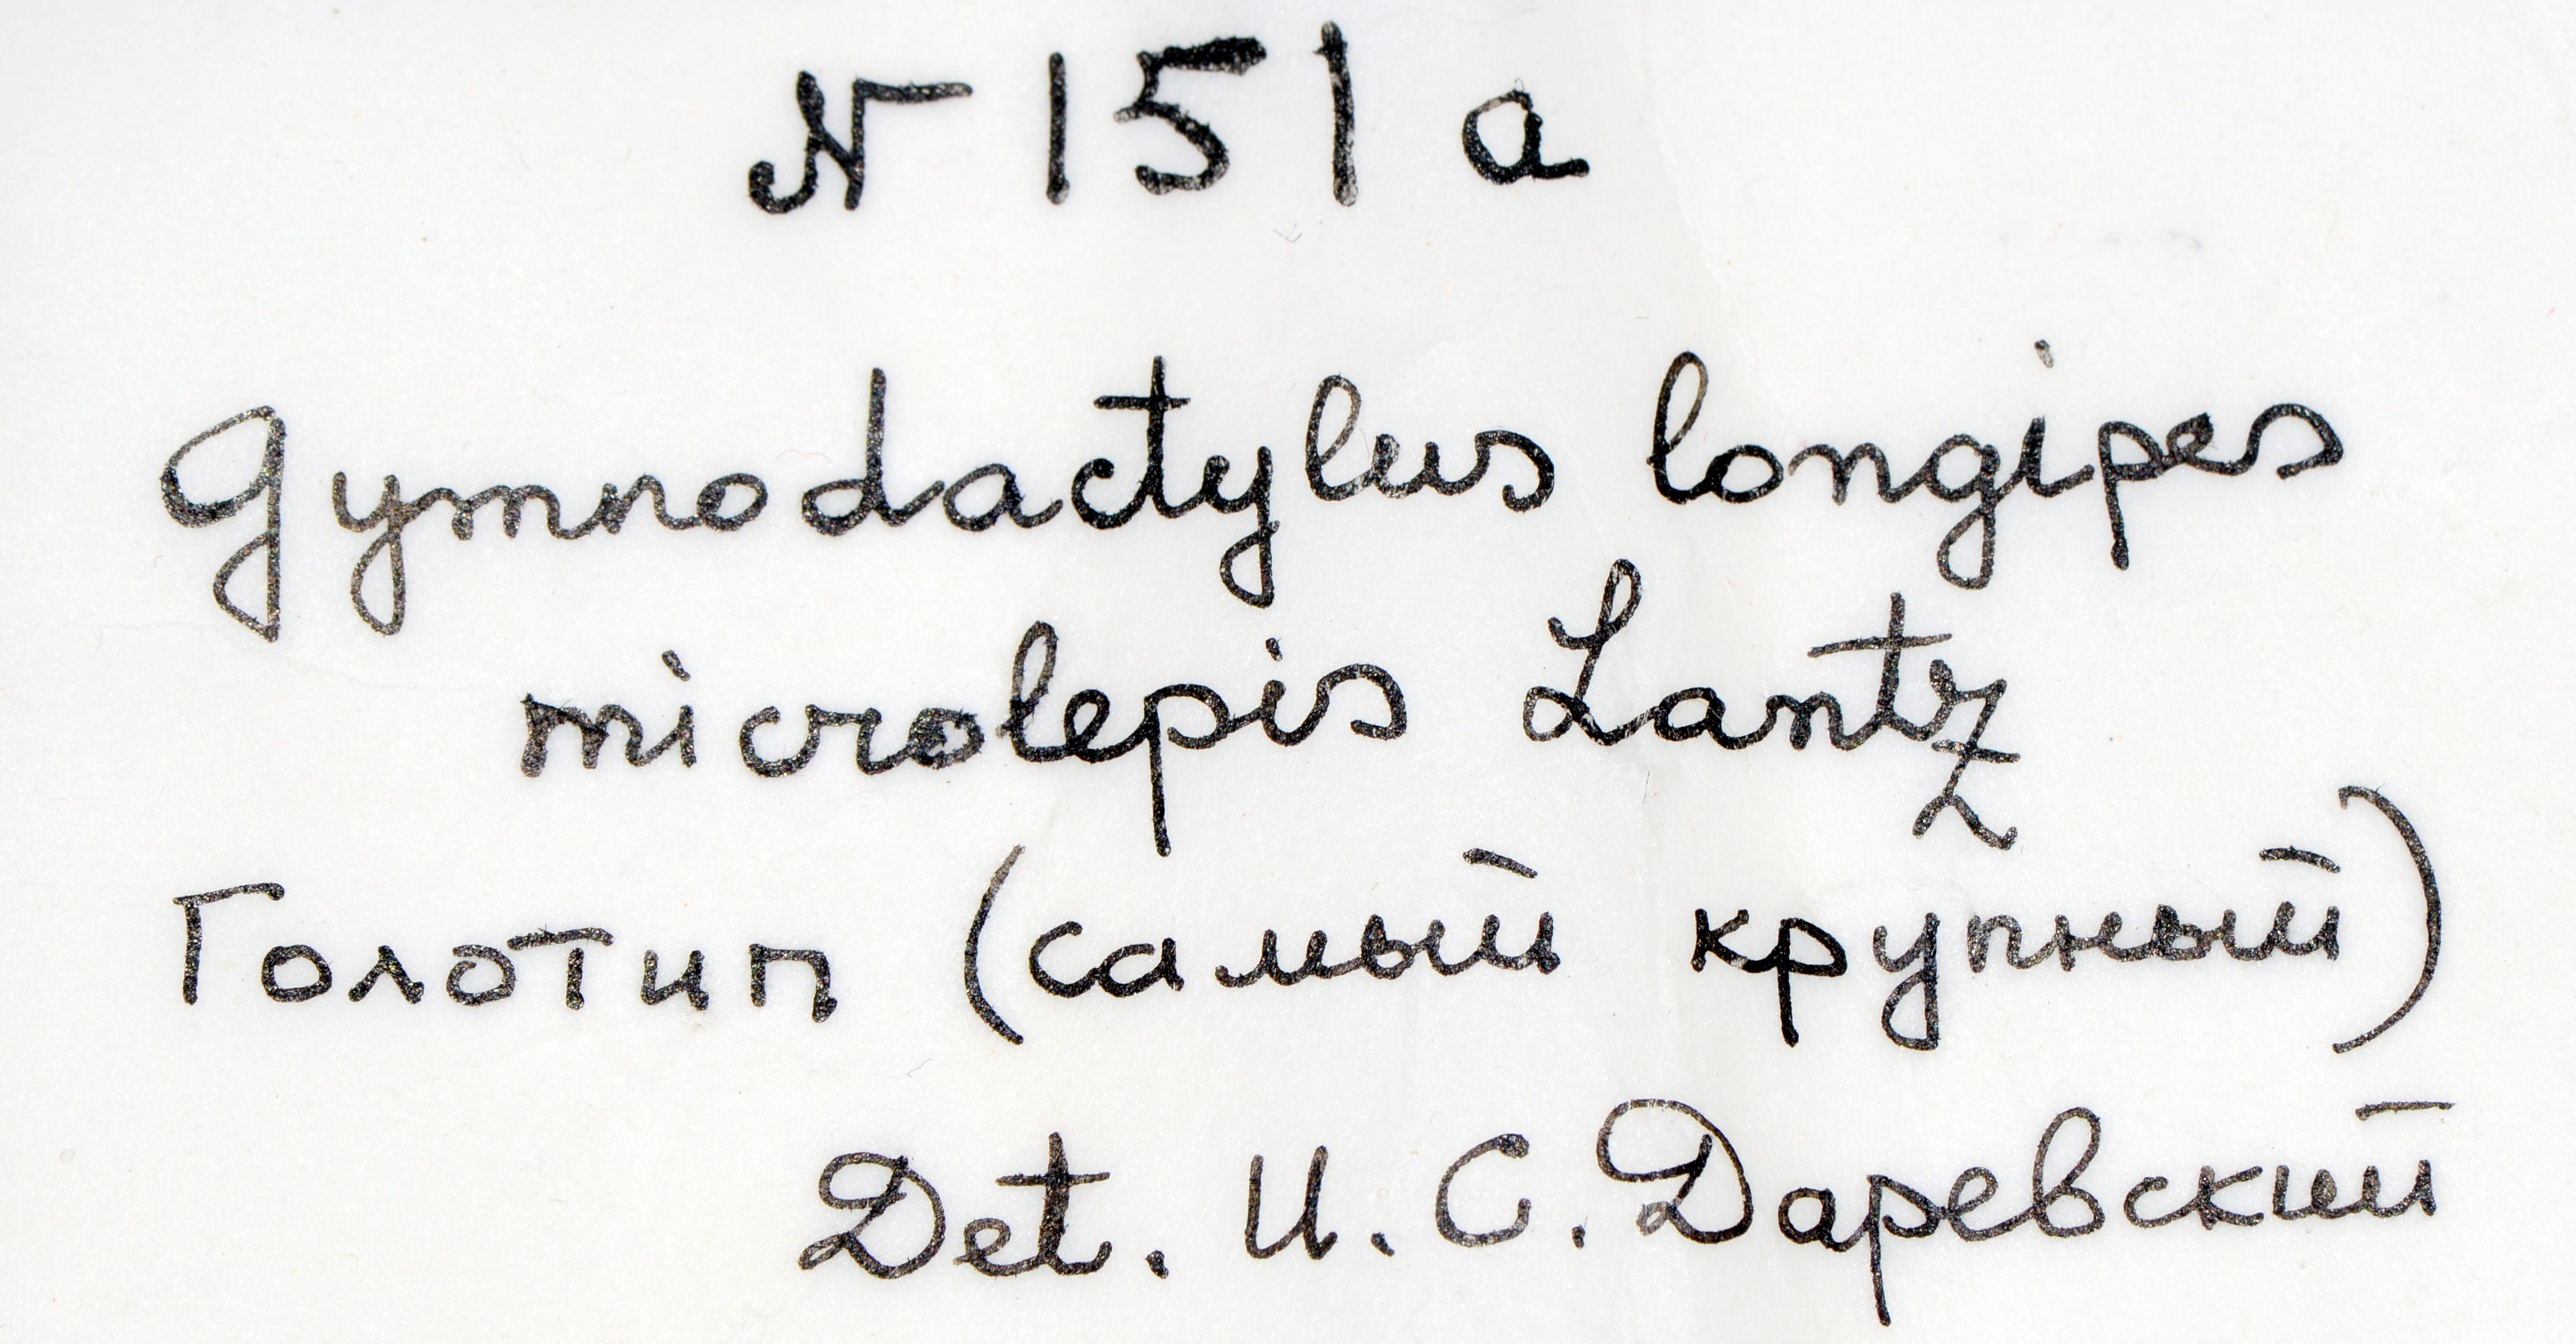 N 151 a
Gymnodactylus longipes
microlepis Lantz
Голотип (самый крупный)
Det. И. С. Даревский